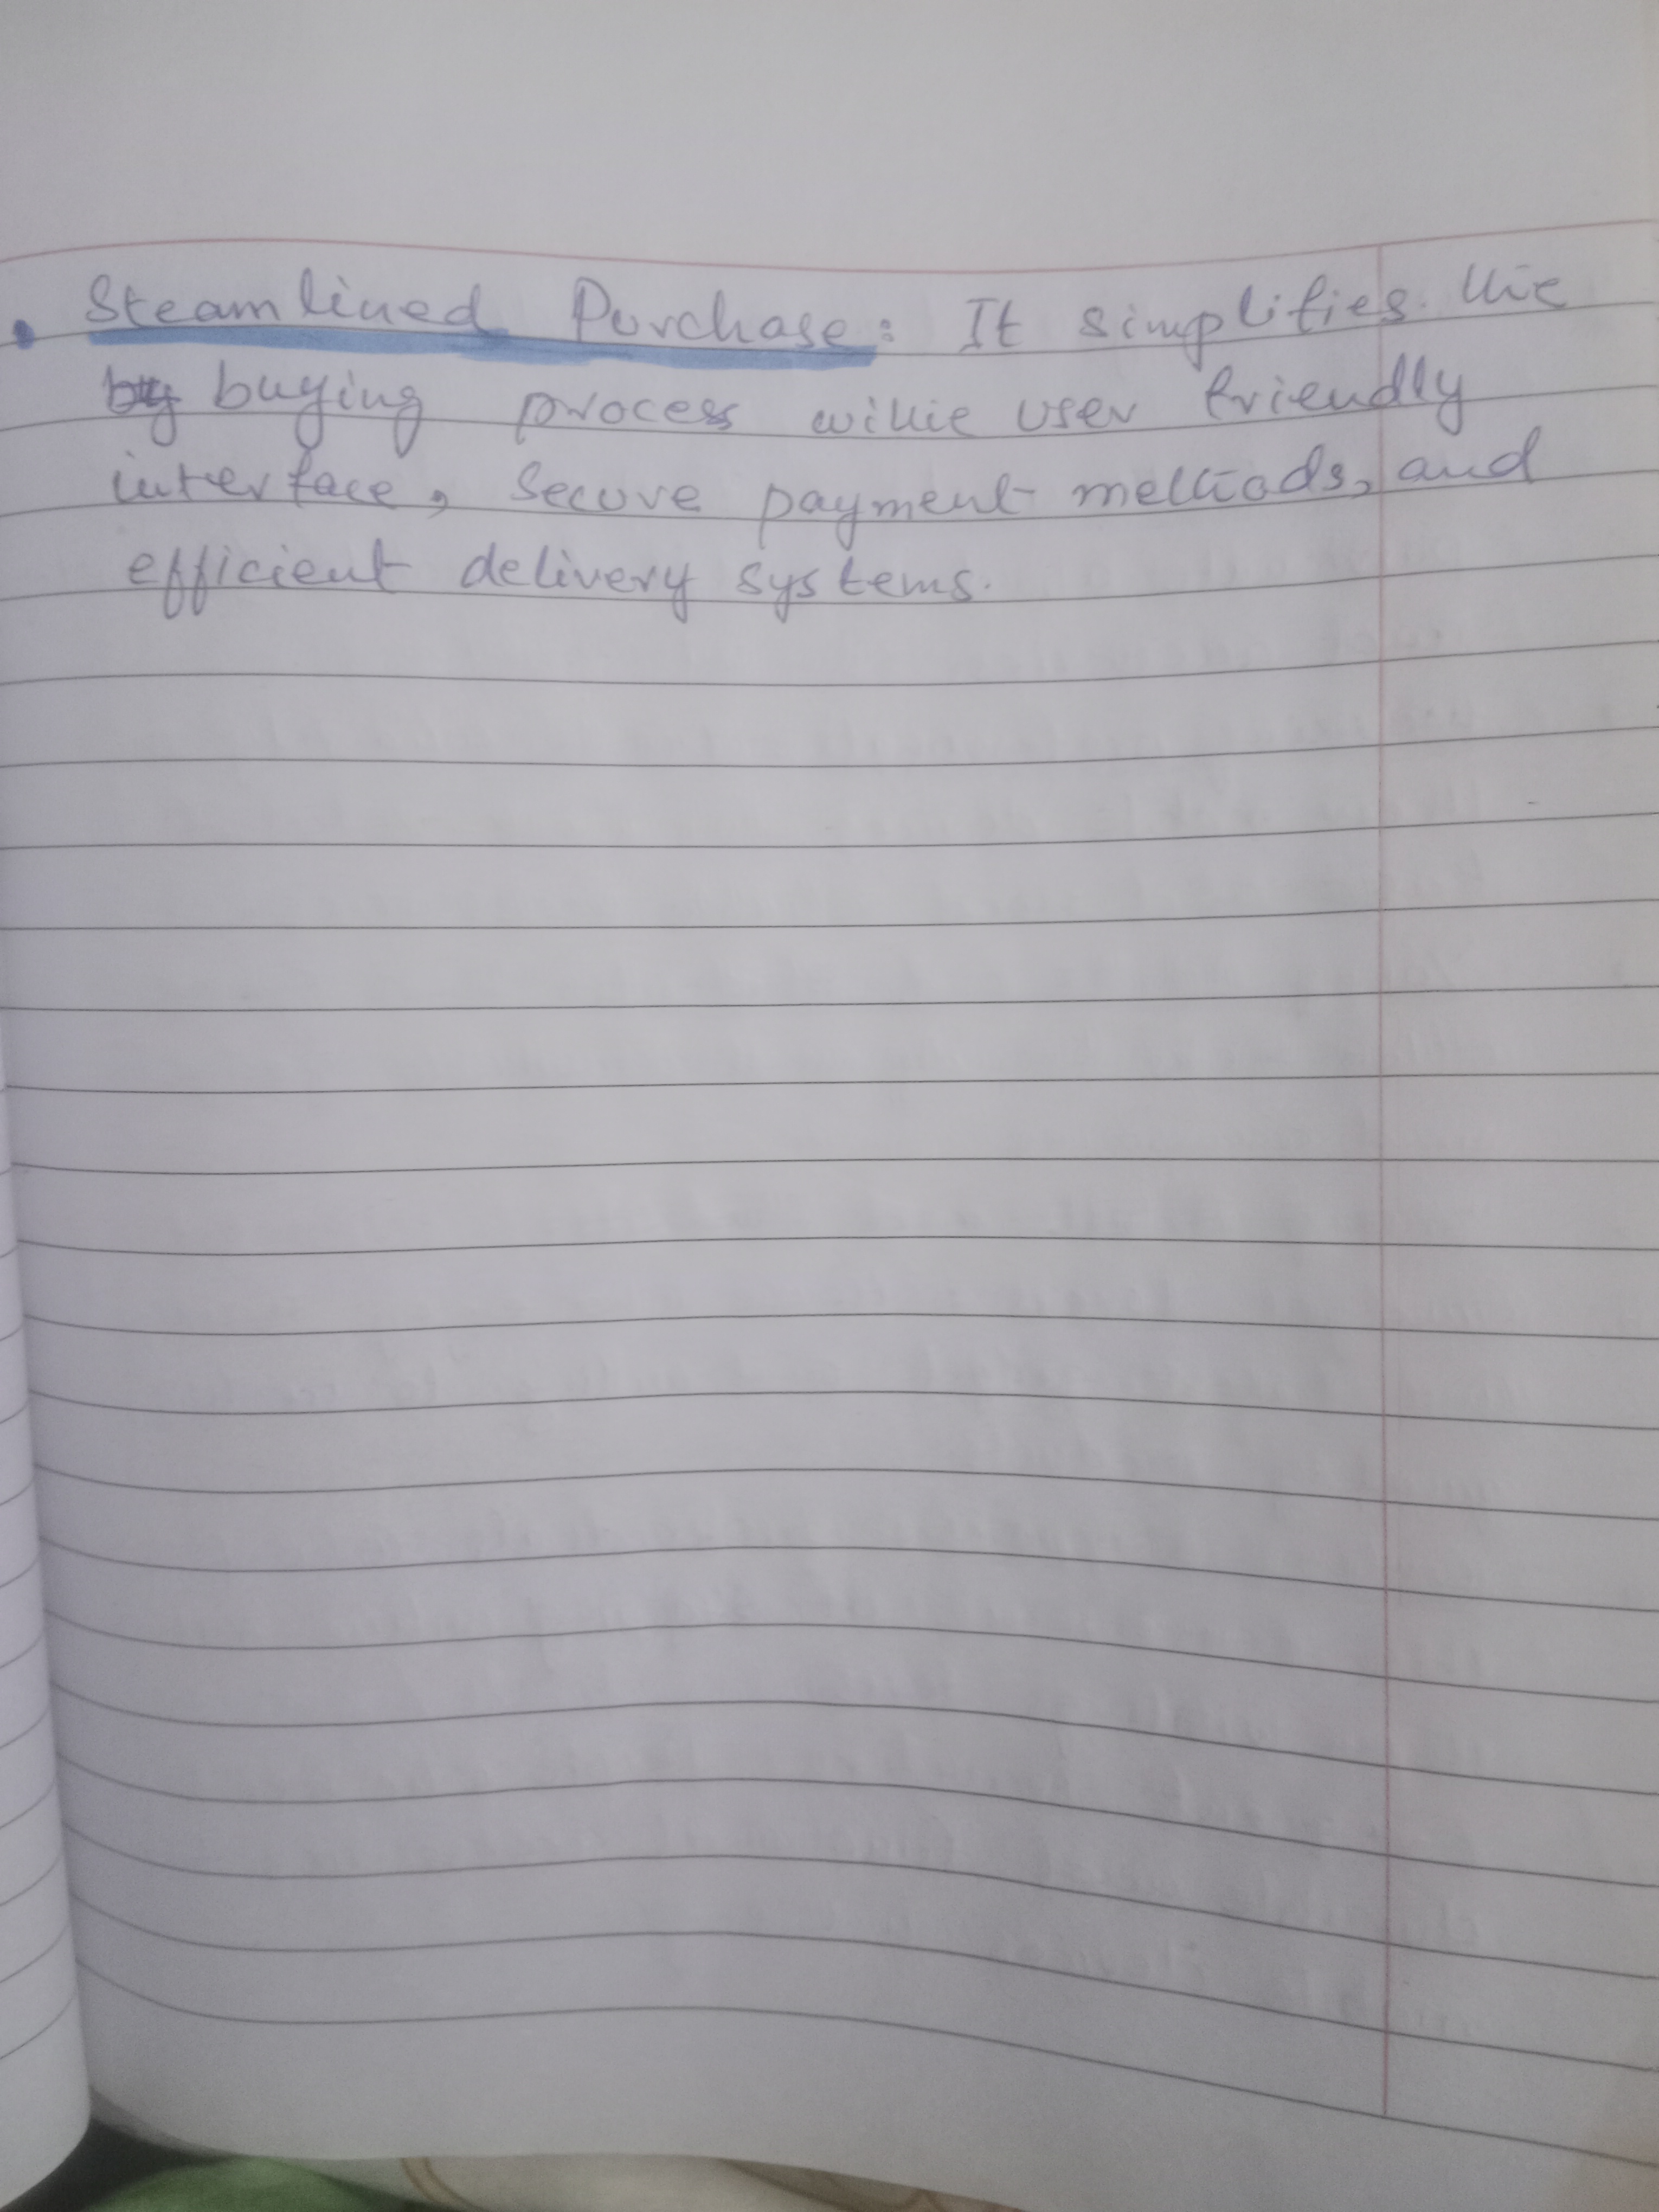 • Steamlined Purchase: It simplifies the
by buying process withe user friendly
interface, Secure payment methods, and
efficient delivery systems.